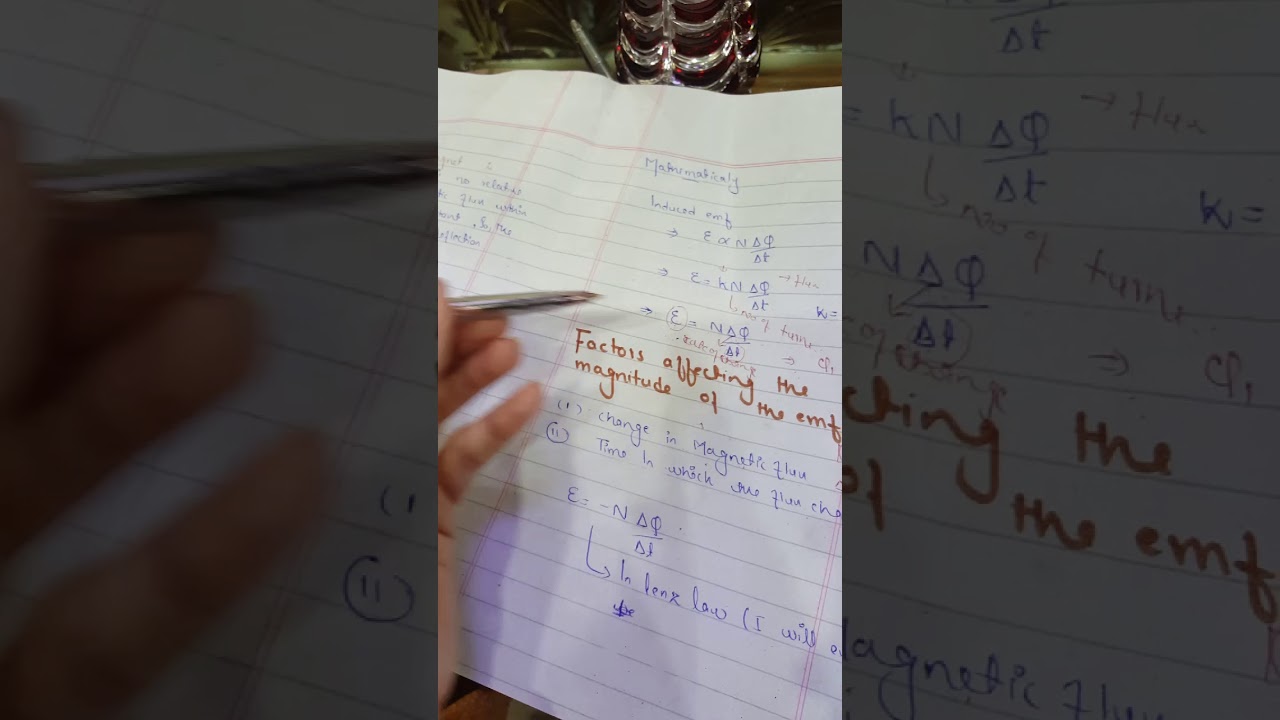 no relative
flux within
Mathematically
Induced emf
⇒ ε ∝ N ΔΦ/Δt
⇒ ε = kN ΔΦ/Δt → flux
↳ no of turns
k =
⇒ ε = N ΔΦ/Δt
rate of change
⇒ Φ₁
Factors affecting the
magnitude of the emf
(i) change in Magnetic flux
(ii) Time in which the flux cha
ε = -N ΔΦ/Δt
↳ In lenz law (I will